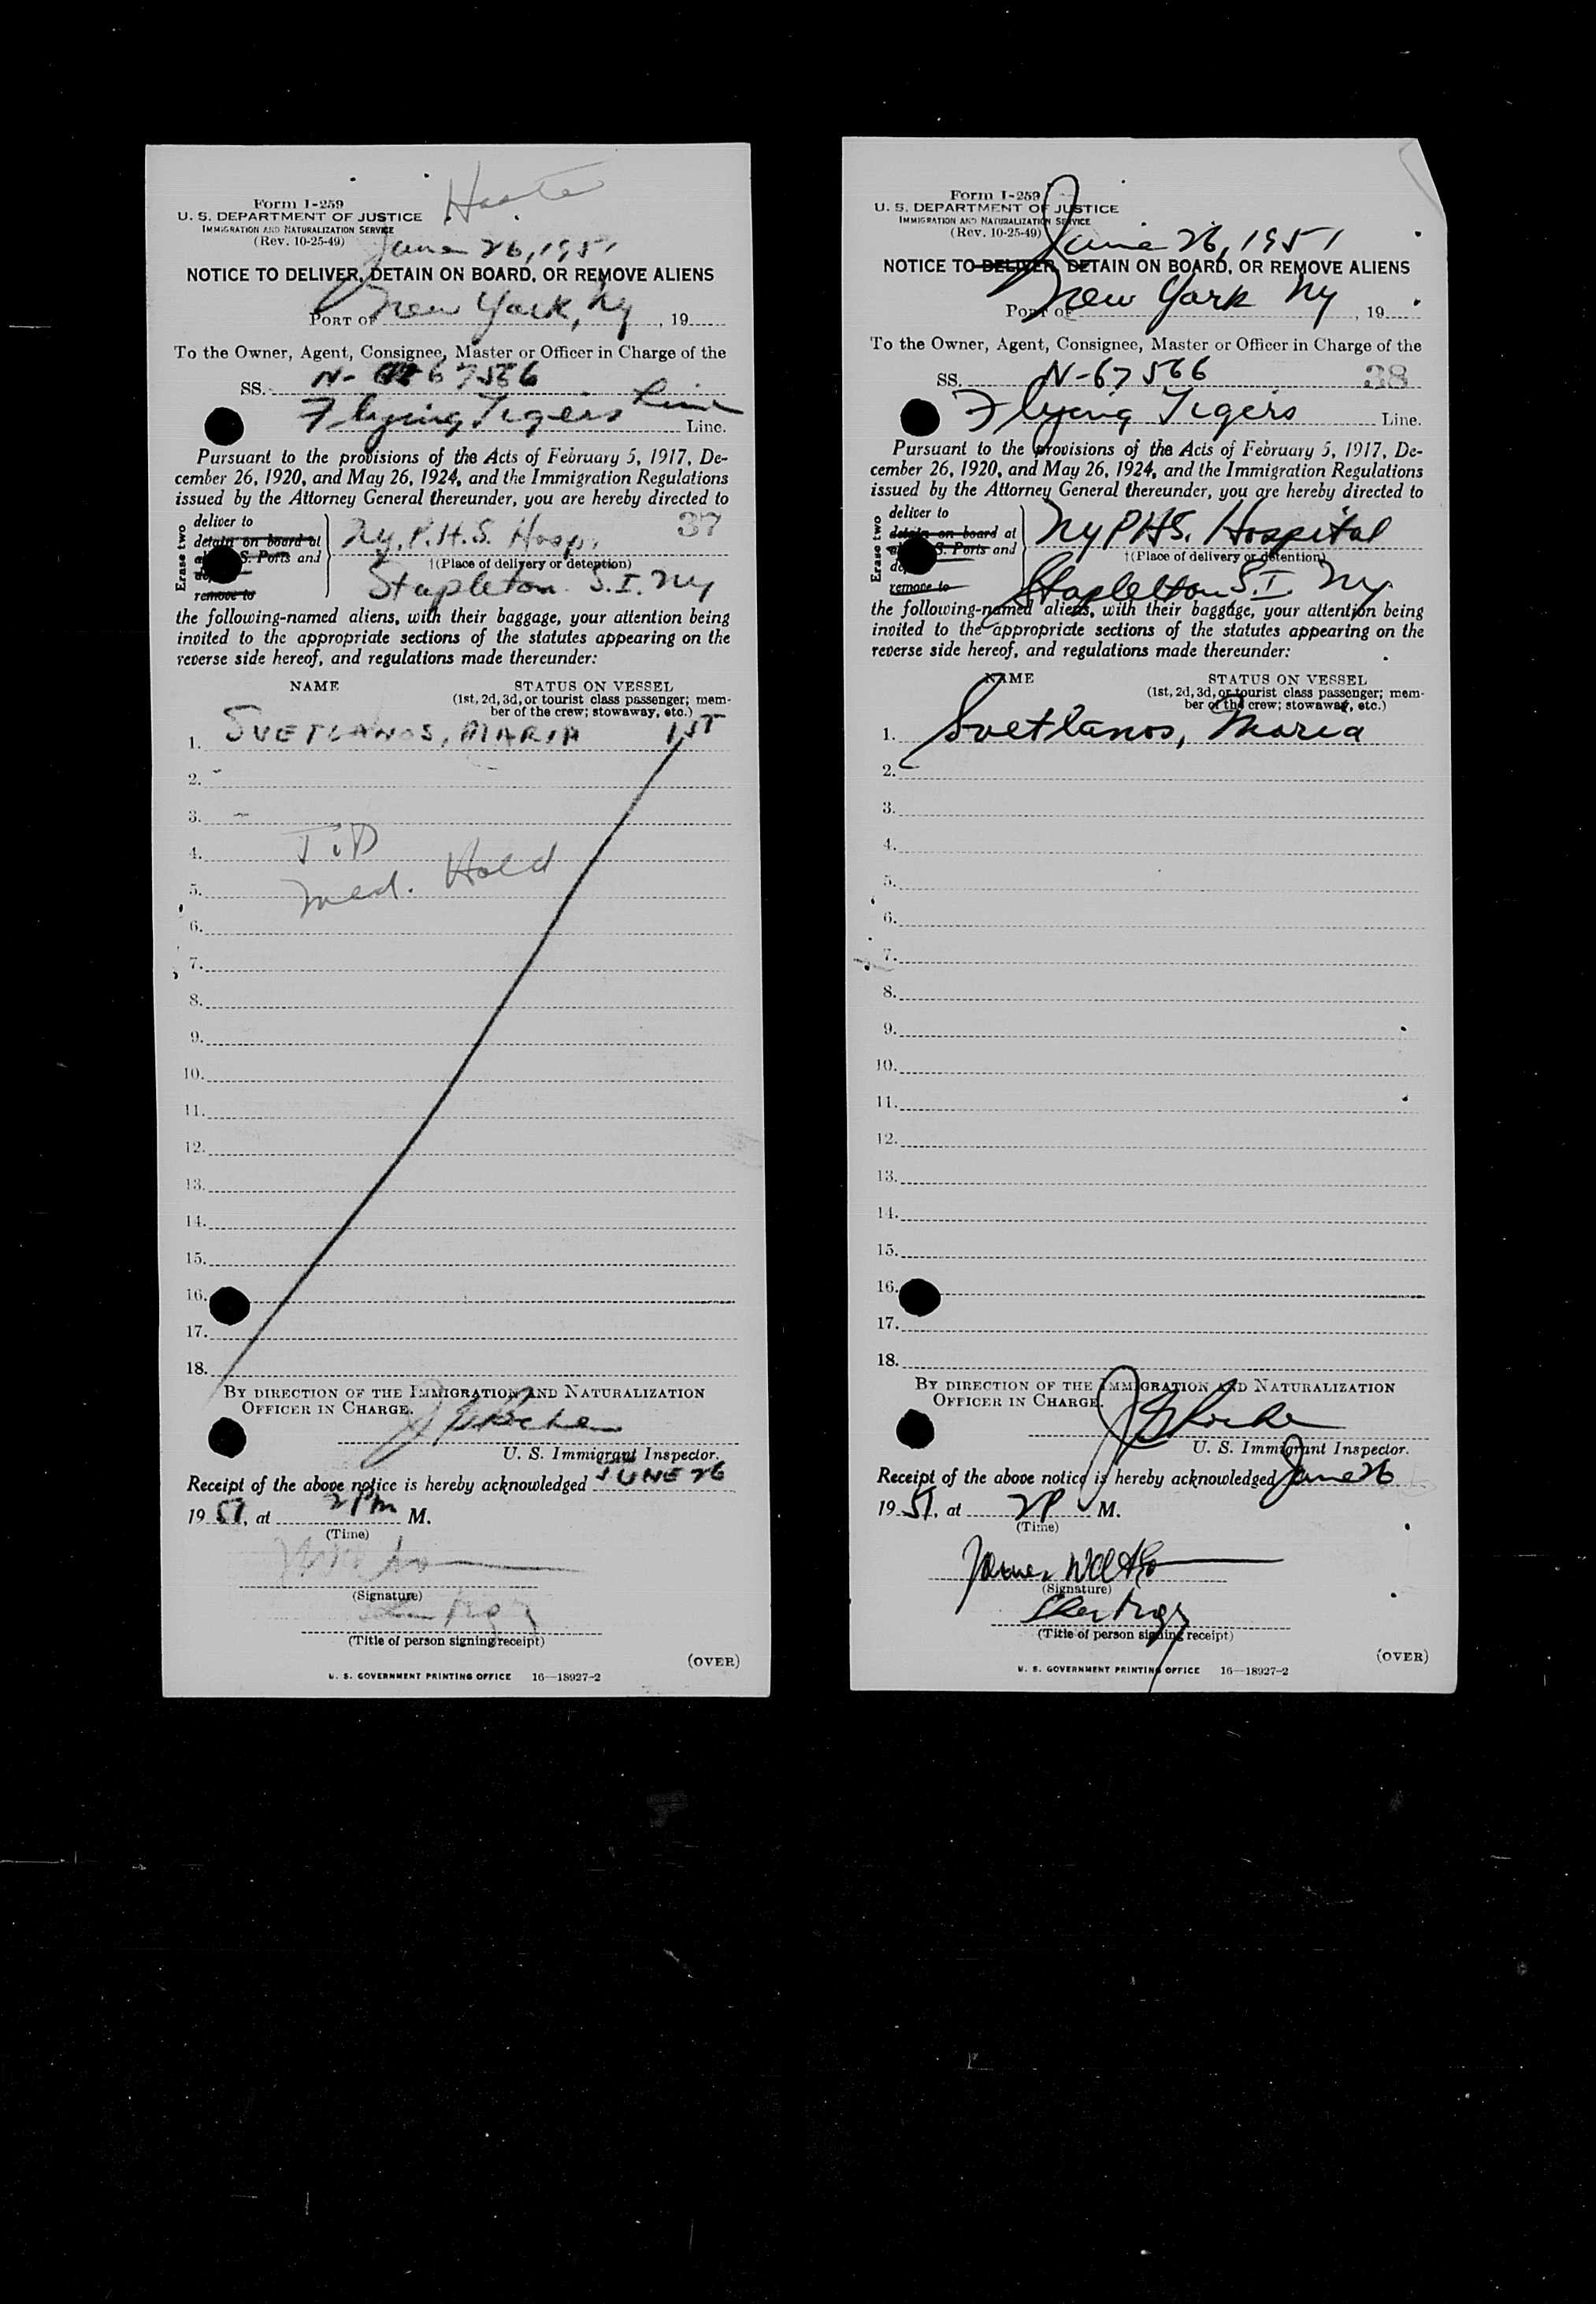 Form I-259
U. S. DEPARTMENT OF JUSTICE
IMMIGRATION AND NATURALIZATION SERVICE
(Rev. 10-25-49)
June 26, 1951
NOTICE TO DELIVER, DETAIN ON BOARD, OR REMOVE ALIENS
PORT OF New York, Ny, 19
To the Owner, Agent, Consignee, Master or Officer in Charge of the
SS. N- 67566
Flying Tigers Line Line.
Pursuant to the provisions of the Acts of February 5, 1917, De-
cember 26, 1920, and May 26, 1924, and the Immigration Regulations
issued by the Attorney General thereunder, you are hereby directed to
37
Erase two
deliver to
detain on board at
S. Ports and
remove to
Ny. P.H.S. Hosp.
†(Place of delivery or detention)
Stapleton S.I. Ny
the following-named aliens, with their baggage, your attention being
invited to the appropriate sections of the statutes appearing on the
reverse side hereof, and regulations made thereunder:
NAME
STATUS ON VESSEL
(1st, 2d, 3d, or tourist class passenger; mem-
ber of the crew; stowaway, etc.)
1. SVETLANOS, MARIA 1ST
2.
3.
4. T.D
5. Med. Hold
6.
7.
8.
9.
10.
11.
12.
13.
14.
15.
16.
17.
18.
BY DIRECTION OF THE IMMIGRATION AND NATURALIZATION
OFFICER IN CHARGE.
U. S. Immigrant Inspector.
Receipt of the above notice is hereby acknowledged JUNE 26
1951, at 2 Pm M.
(Time)
(Signature)
(Title of person signing receipt)
(OVER)
U. S. GOVERNMENT PRINTING OFFICE 16—18927-2
Form I-259
U. S. DEPARTMENT OF JUSTICE
IMMIGRATION AND NATURALIZATION SERVICE
(Rev. 10-25-49)
June 26, 1951
NOTICE TO DELIVER, DETAIN ON BOARD, OR REMOVE ALIENS
PORT OF New York Ny, 19
To the Owner, Agent, Consignee, Master or Officer in Charge of the
SS. N-67566 38
Flying Tigers Line.
Pursuant to the provisions of the Acts of February 5, 1917, De-
cember 26, 1920, and May 26, 1924, and the Immigration Regulations
issued by the Attorney General thereunder, you are hereby directed to
Erase two
deliver to
detain on board at
S. Ports and
remove to
Ny PHS. Hospital
†(Place of delivery or detention)
Stapleton S.I. Ny
the following-named aliens, with their baggage, your attention being
invited to the appropriate sections of the statutes appearing on the
reverse side hereof, and regulations made thereunder:
NAME
STATUS ON VESSEL
(1st, 2d, 3d, or tourist class passenger; mem-
ber of the crew; stowaway, etc.)
1. Svetlanos, Maria
2.
3.
4.
5.
6.
7.
8.
9.
10.
11.
12.
13.
14.
15.
16.
17.
18.
BY DIRECTION OF THE IMMIGRATION AND NATURALIZATION
OFFICER IN CHARGE.
U. S. Immigrant Inspector.
Receipt of the above notice is hereby acknowledged June 26
1951, at 2P M.
(Time)
(Signature)
(Title of person signing receipt)
(OVER)
U. S. GOVERNMENT PRINTING OFFICE 16—18927-2